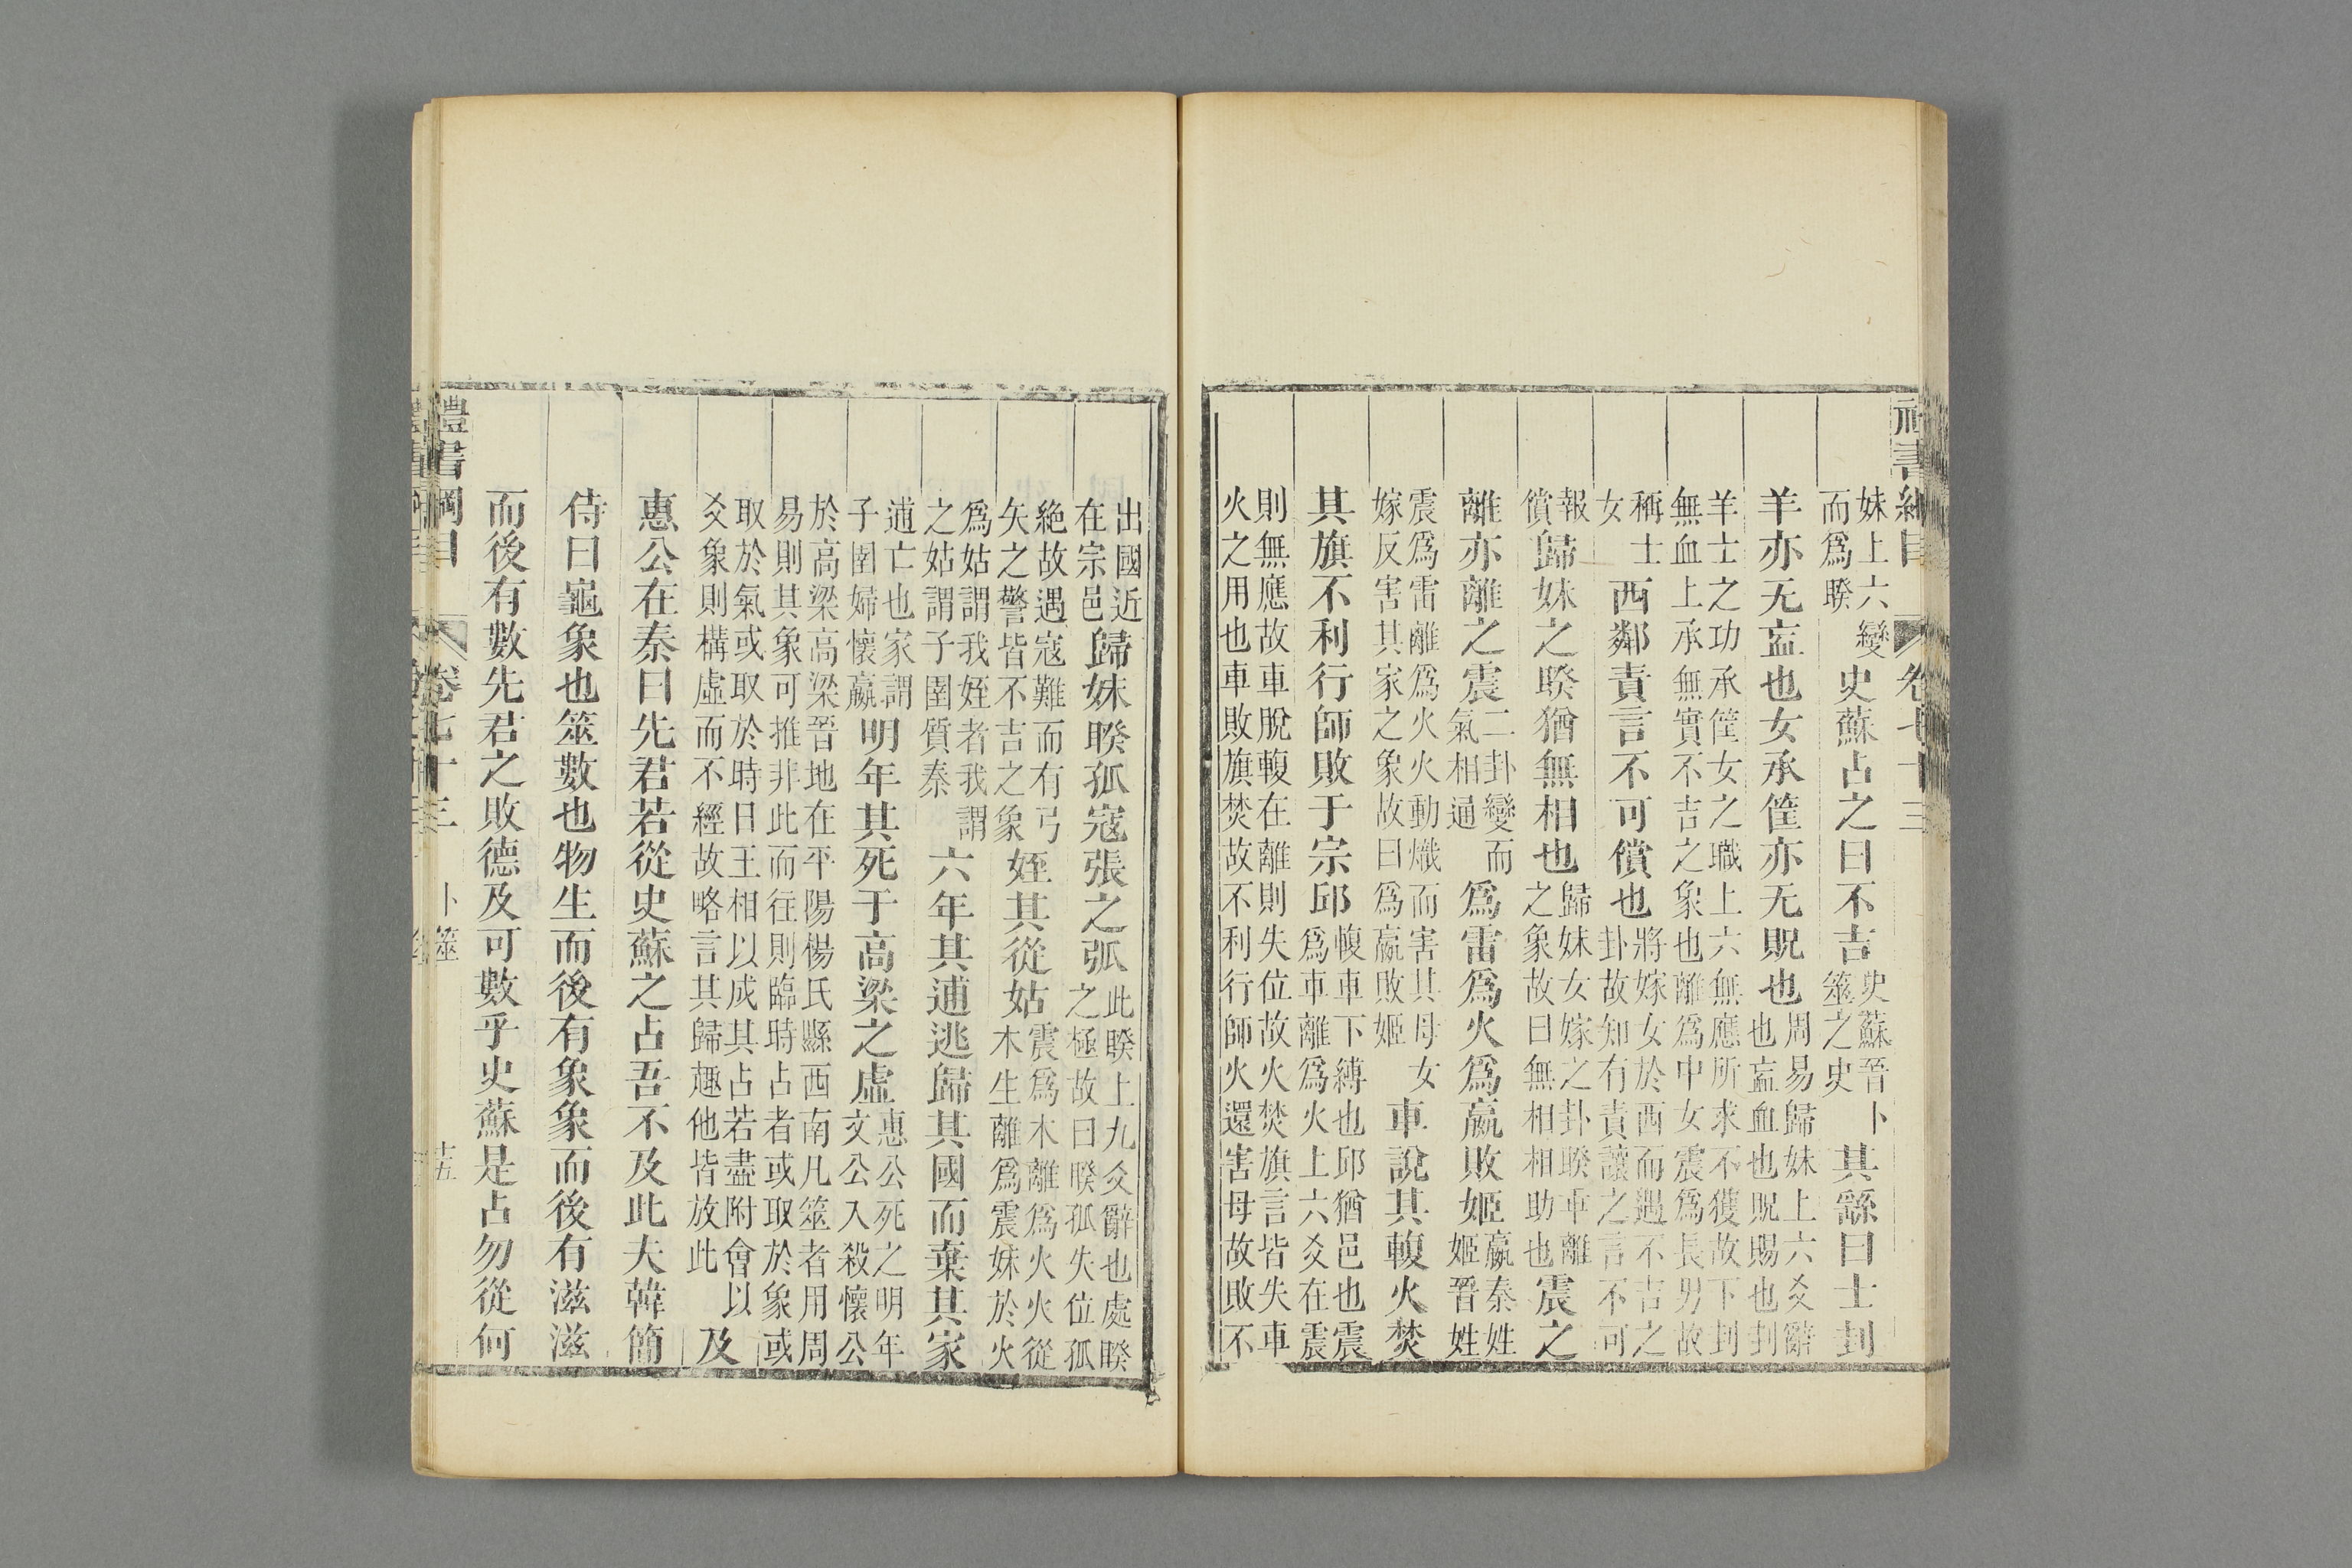 禮書綱目 卷七十三
妹上六變而爲睽史蘇占之曰不吉史蘇晉卜筮之史其繇曰士刲
羊亦无衁也女承筐亦无貺也周易歸妹上六爻辭也衁血也貺賜也刲
羊士之功承筐女之職上六無應所求不獲故下刲無血上承無實不吉之象也離爲中女震爲長男故
稱士女西鄰責言不可償也將嫁女於西而遇不吉之卦故知有責讓之言不可
報償歸妹之睽猶無相也歸妹女嫁之卦睽乖離之象故曰無相相助也震之
離亦離之震二卦變而氣相通爲雷爲火爲嬴敗姬嬴秦姓姬晉姓
震爲雷離爲火火動熾而害其母女嫁反害其家之象故曰爲嬴敗姬車說其輹火焚
其旗不利行師敗于宗邱輹車下縛也邱猶邑也震爲車離爲火上六爻在震
則無應故車脫輹在離則失位故火焚旗言皆失車火之用也車敗旗焚故不利行師火還害母故敗不
出國近在宗邑歸妹睽孤寇張之弧此睽上九爻辭也處睽之極故曰睽孤失位孤
絶故遇寇難而有弓矢之警皆不吉之象姪其從姑震爲木離爲火火從木生離爲震妹於火
爲姑謂我姪者我謂之姑謂子圉質秦六年其逋逃歸其國而棄其家
逋亡也家謂子圉婦懷嬴明年其死于高梁之虛惠公死之明年文公入殺懷公
於高梁高梁晉地在平陽楊氏縣西南凡筮者用周易則其象可推非此而往則臨時占者或取於象或
取於氣或取於時日王相以成其占若盡附會以爻象則構虛而不經故略言其歸趣他皆放此及
惠公在秦曰先君若從史蘇之占吾不及此夫韓簡
侍曰龜象也筮數也物生而後有象象而後有滋滋
而後有數先君之敗德及可數乎史蘇是占勿從何
禮書綱目 卷七十三 卜筮 十五